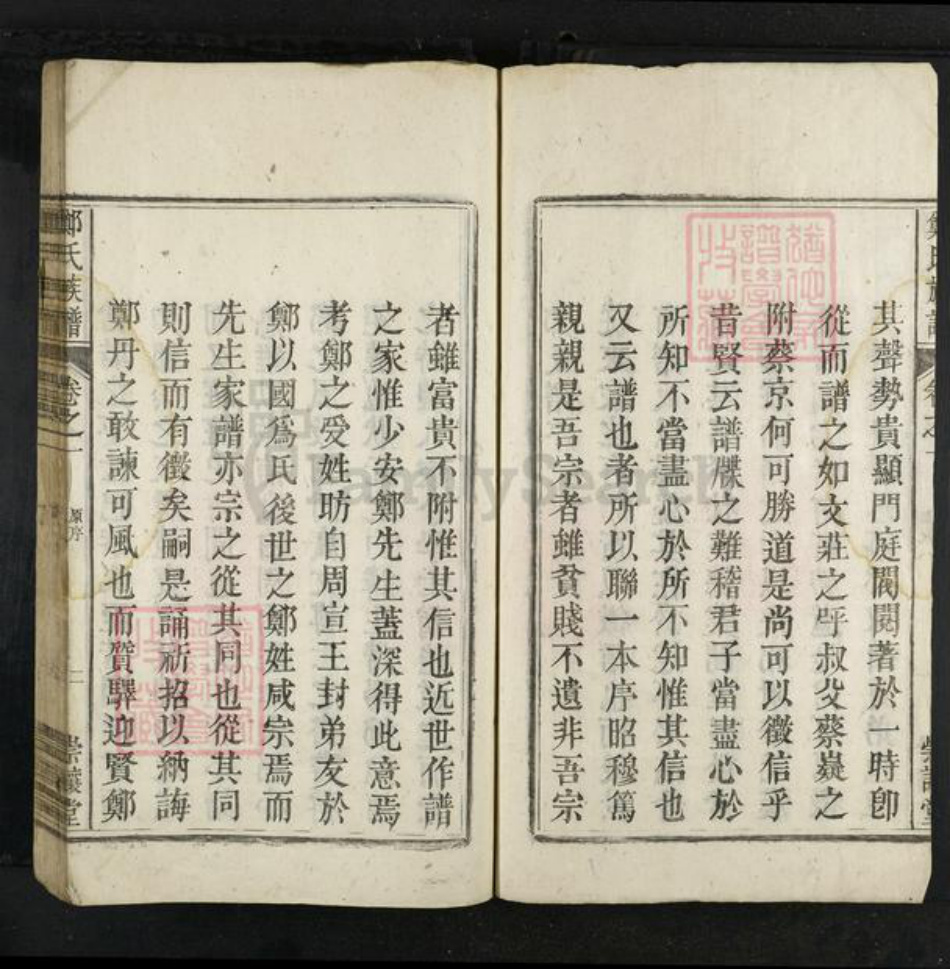 其聲勢貴顯門庭閥閱著於一時卽
從而譜之如文莊之呼叔父蔡嶷之
附蔡京何可勝道是尚可以徵信乎
昔賢云譜牒之難稽君子當盡心於
所知不當盡心於所不知惟其信也
又云譜也者所以聯一本序昭穆篤
親親是吾宗者雖貧賤不遺非吾宗
者雖富貴不附惟其信也近世作譜
之家惟少安鄭先生蓋深得此意焉
考鄭之受姓昉自周宣王封弟友於
鄭以國爲氏後世之鄭姓咸宗焉而
先生家譜亦宗之從其同也從其同
則信而有徵矣嗣是誦祈招以納誨
鄭丹之敢諫可風也而置驛迎賢鄭
鄭氏族譜
卷之一
原序
二
崇讓堂
FamilySearch